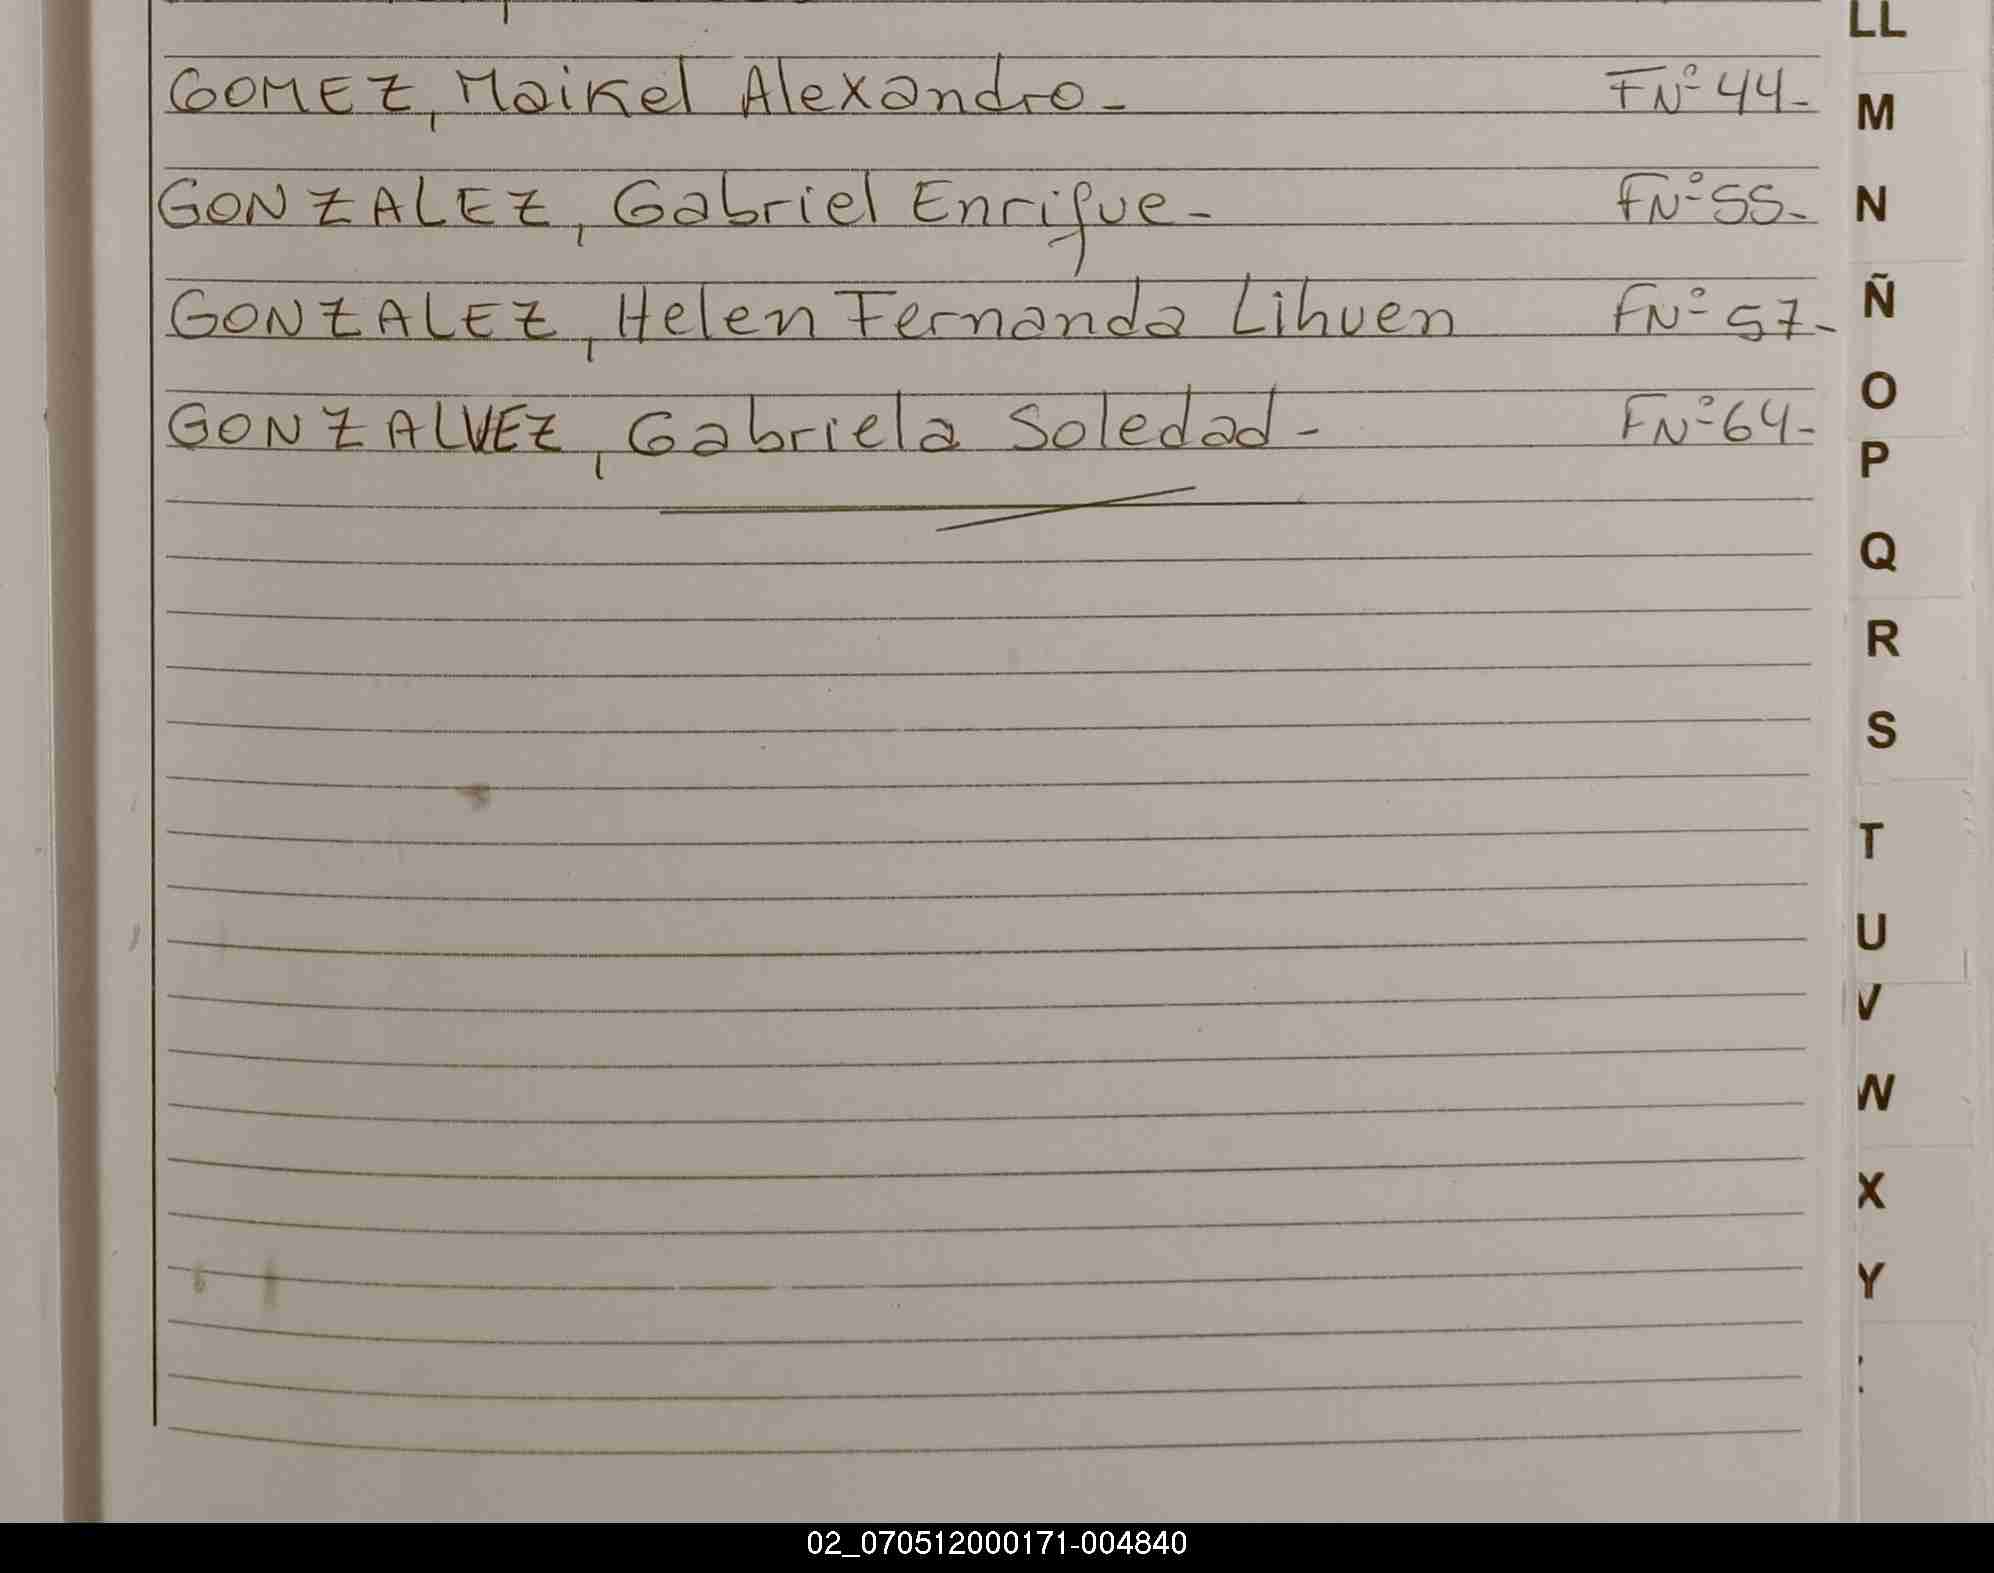 GOMEZ, Maikel Alexandro- FNº 44-
GONZALEZ, Gabriel Enrique- FNº 55-
GONZALEZ, Helen Fernanda Lihuen FNº 57-
GONZALVEZ, Gabriela Soledad- FNº 64-
LL
M
N
Ñ
O
P
Q
R
S
T
U
V
W
X
Y
02_070512000171-004840